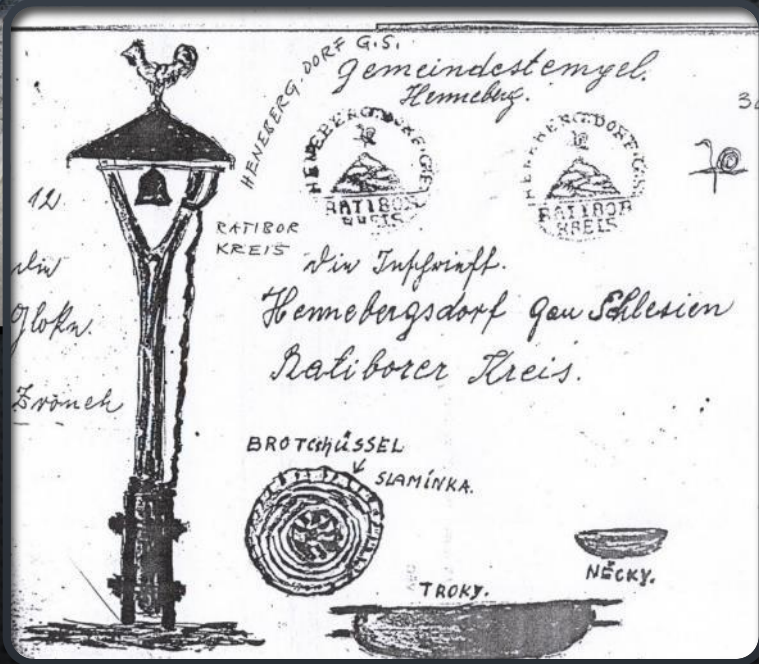 HENEBERG. DORF G.S.
Gemeindestempel.
Henneberg.
HENEBERG. DORF. G.S.
RATIBOR
KREIS
HENEBERG. DORF. G.S.
RATIBOR
KREIS
12
RATIBOR
KREIS
die
Glokn.
Zvoneh
die Inschrieft.
Hennebergsdorf Gau Schlesien
Ratiborer Kreis.
BROTCHÜSSEL
SLAMÍNKA.
NĚCKY.
TROKY.